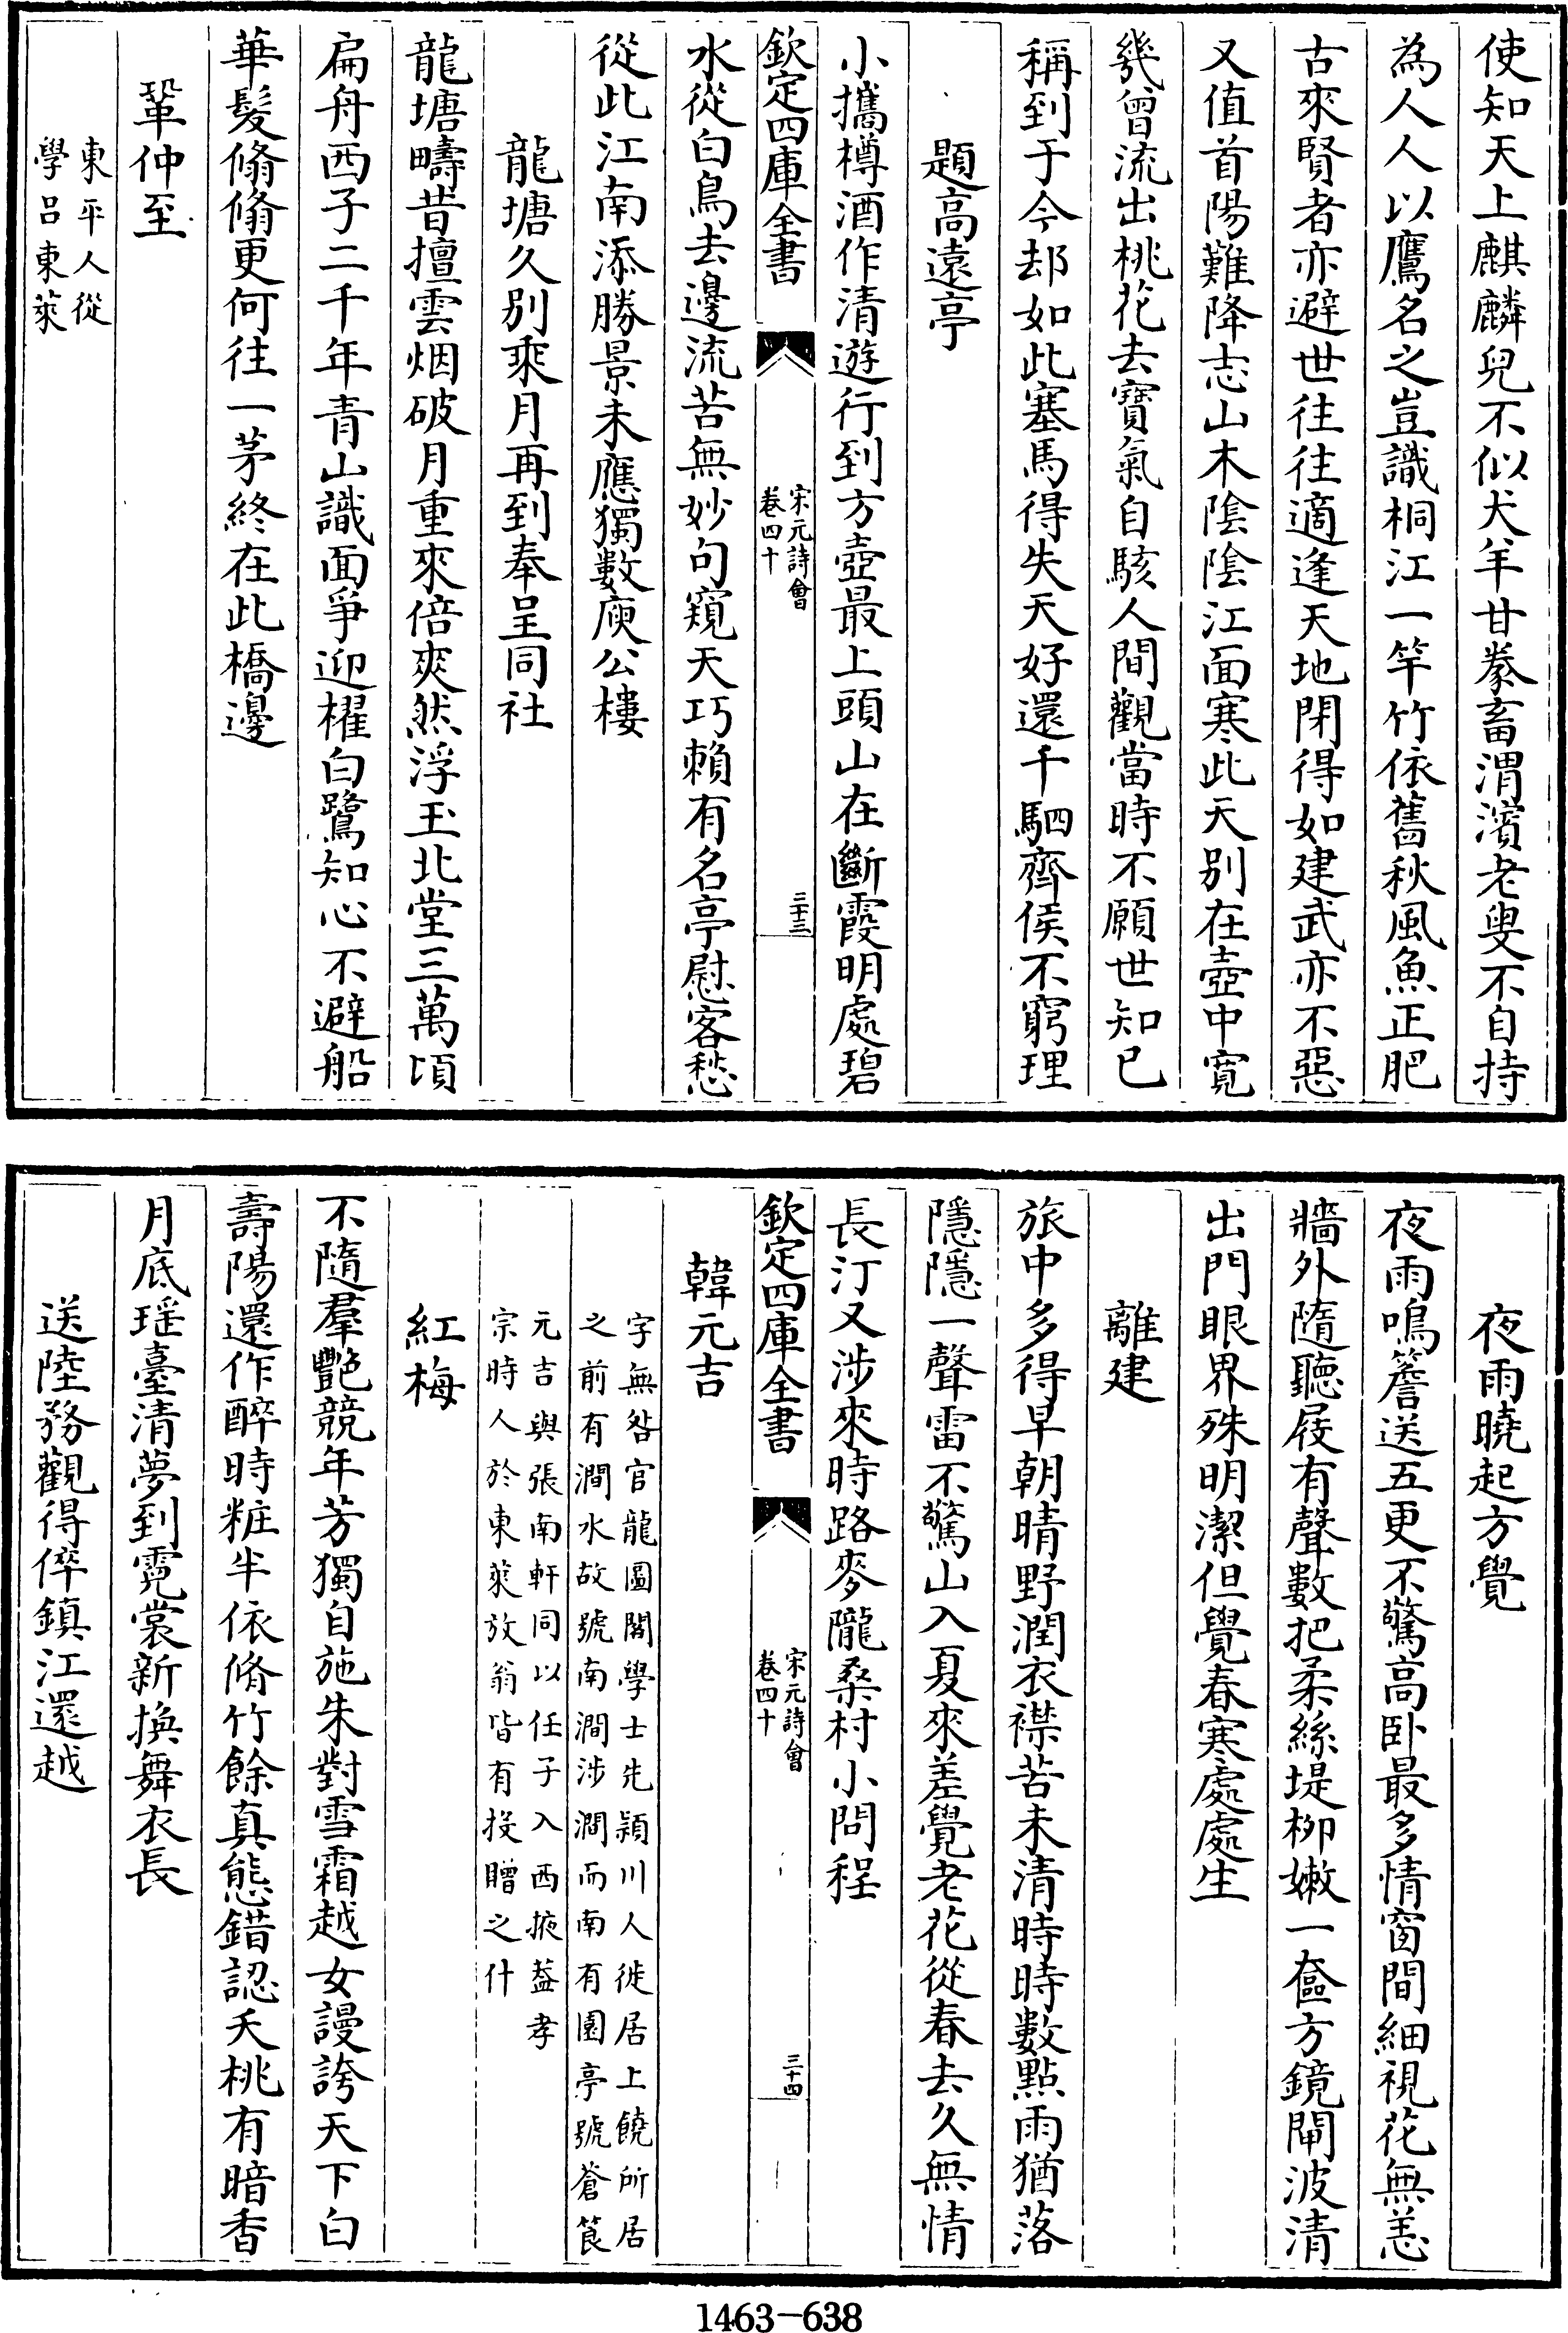 使知天上麒麟兒不似犬羊甘豢畜渭濱老叟不自持
為人人以鷹名之豈識桐江一竿竹依舊秋風魚正肥
古來賢者亦避世往往適逢天地閉得如建武亦不惡
又值首陽難降志山木陰陰江面寒此天别在壺中寛
幾曾流出桃花去寶氣自駭人間觀當時不願世知已
稱到于今却如此塞馬得失天好還千駟齊侯不窮理
題高遠亭
小攜樽酒作清遊行到方壺最上頭山在斷霞明處碧
欽定四庫全書
宋元詩會
卷四十
三十三
水從白鳥去邊流苦無妙句窺天巧賴有名亭慰客愁
從此江南添勝景未應獨數庾公樓
龍塘久别乘月再到奉呈同社
龍塘疇昔擅雲烟破月重來倍爽然浮玉北堂三萬頃
扁舟西子二千年青山識面爭迎櫂白鷺知心不避船
華髮翛翛更何往一茅終在此橋邊
鞏仲至
東平人從
學呂東萊
夜雨曉起方覺
夜雨鳴簷送五更不驚高卧最多情窗間細視花無恙
牆外隨聽屐有聲數把柔絲堤柳嫩一奩方鏡閘波清
出門眼界殊明潔但覺春寒處處生
離建
旅中多得早朝晴野潤衣襟苦未清時時數點雨猶落
隱隱一聲雷不驚山入夏來差覺老花從春去久無情
長汀又涉來時路麥隴桑村小問程
欽定四庫全書
宋元詩會
卷四十
三十四
韓元吉
字無咎官龍圖閣學士先頴川人徙居上饒所居
之前有澗水故號南澗涉澗而南有園亭號蒼筤
元吉與張南軒同以任子入西掖葢孝
宗時人於東萊放翁皆有投贈之什
紅梅
不隨羣艷競年芳獨自施朱對雪霜越女謾誇天下白
壽陽還作醉時粧半依脩竹餘真態錯認夭桃有暗香
月底瑶臺清夢到霓裳新換舞衣長
送陸務觀得倅鎮江還越
1463-638